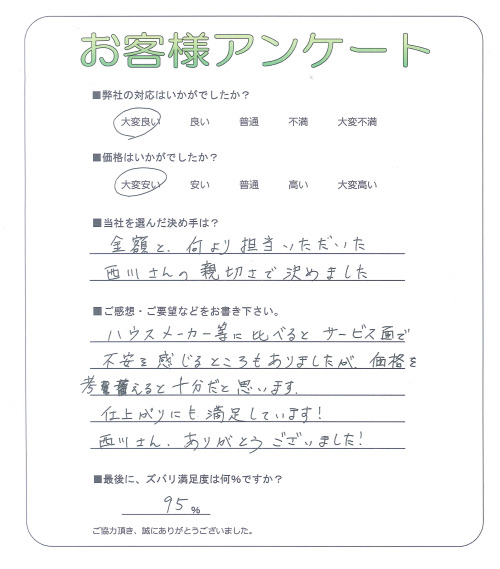 お客様アンケート
■弊社の対応はいかがでしたか？
大変良い 良い 普通 不満 大変不満
■価格はいかがでしたか？
大変安い 安い 普通 高い 大変高い
■当社を選んだ決め手は？
金額と、何より担当いただいた
西川さんの親切さで決めました
■ご感想・ご要望などをお書き下さい。
ハウスメーカー等に比べるとサービス面で
不安を感じるところもありましたが、価格を
考えると十分だと思います。
仕上がりにも満足しています！
西川さん、ありがとうございました！
■最後に、ズバリ満足度は何％ですか？
95％
ご協力頂き、誠にありがとうございました。